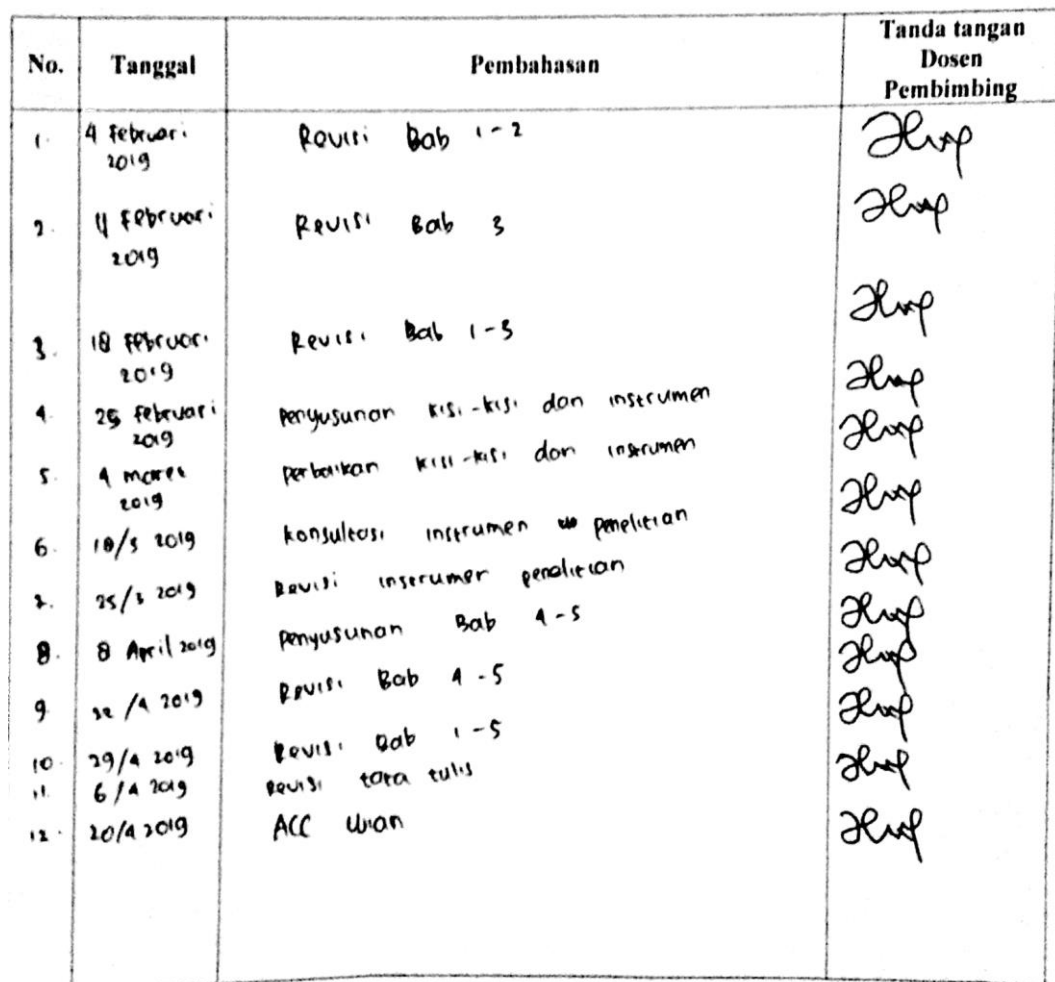 No. Tanggal Pembahasan Tanda tangan Dosen Pembimbing
1. 4 Februari 2019 Revisi Bab 1-2
2. 11 Februari 2019 Revisi Bab 3
3. 18 Februari 2019 Revisi Bab 1-3
4. 25 Februari 2019 Penyusunan kisi-kisi dan instrumen
5. 4 maret 2019 perbaikan kisi-kisi dan instrumen
6. 18/3 2019 konsultasi instrumen penelitian
7. 25/3 2019 Revisi instrumen penelitian
8. 8 April 2019 Penyusunan Bab 4-5
9. 22/4 2019 Revisi Bab 4-5
10. 29/4 2019 Revisi Bab 1-5
11. 6/4 2019 Revisi tata tulis
12. 20/4 2019 ACC Ujian